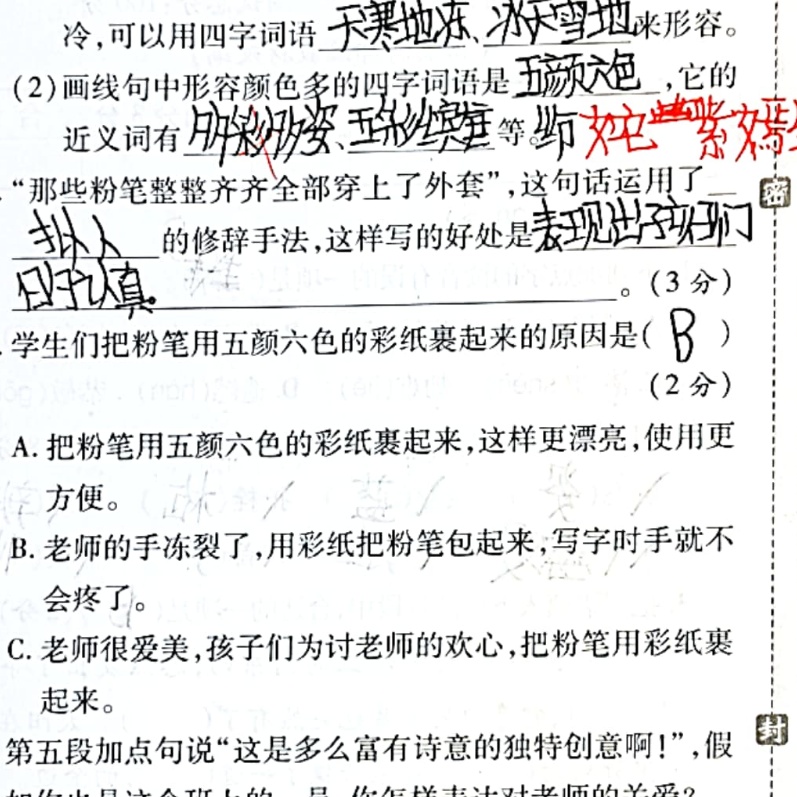 冷,可以用四字词语天寒地冻、冰天雪地来形容。
(2)画线句中形容颜色多的四字词语是五颜六色,它的
近义词有多彩多姿、五彩缤纷等。 姹紫嫣
“那些粉笔整整齐齐全部穿上了外套”,这句话运用了
拟人的修辞手法,这样写的好处是表现出孩子们
认真。(3分)
学生们把粉笔用五颜六色的彩纸裹起来的原因是(B)
(2分)
A. 把粉笔用五颜六色的彩纸裹起来,这样更漂亮,使用更
方便。
B. 老师的手冻裂了,用彩纸把粉笔包起来,写字时手就不
会疼了。
C. 老师很爱美,孩子们为讨老师的欢心,把粉笔用彩纸裹
起来。
第五段加点句说“这是多么富有诗意的独特创意啊!”,假
如你也是这个班上的一员,你怎样表达对老师的关爱?
密
封